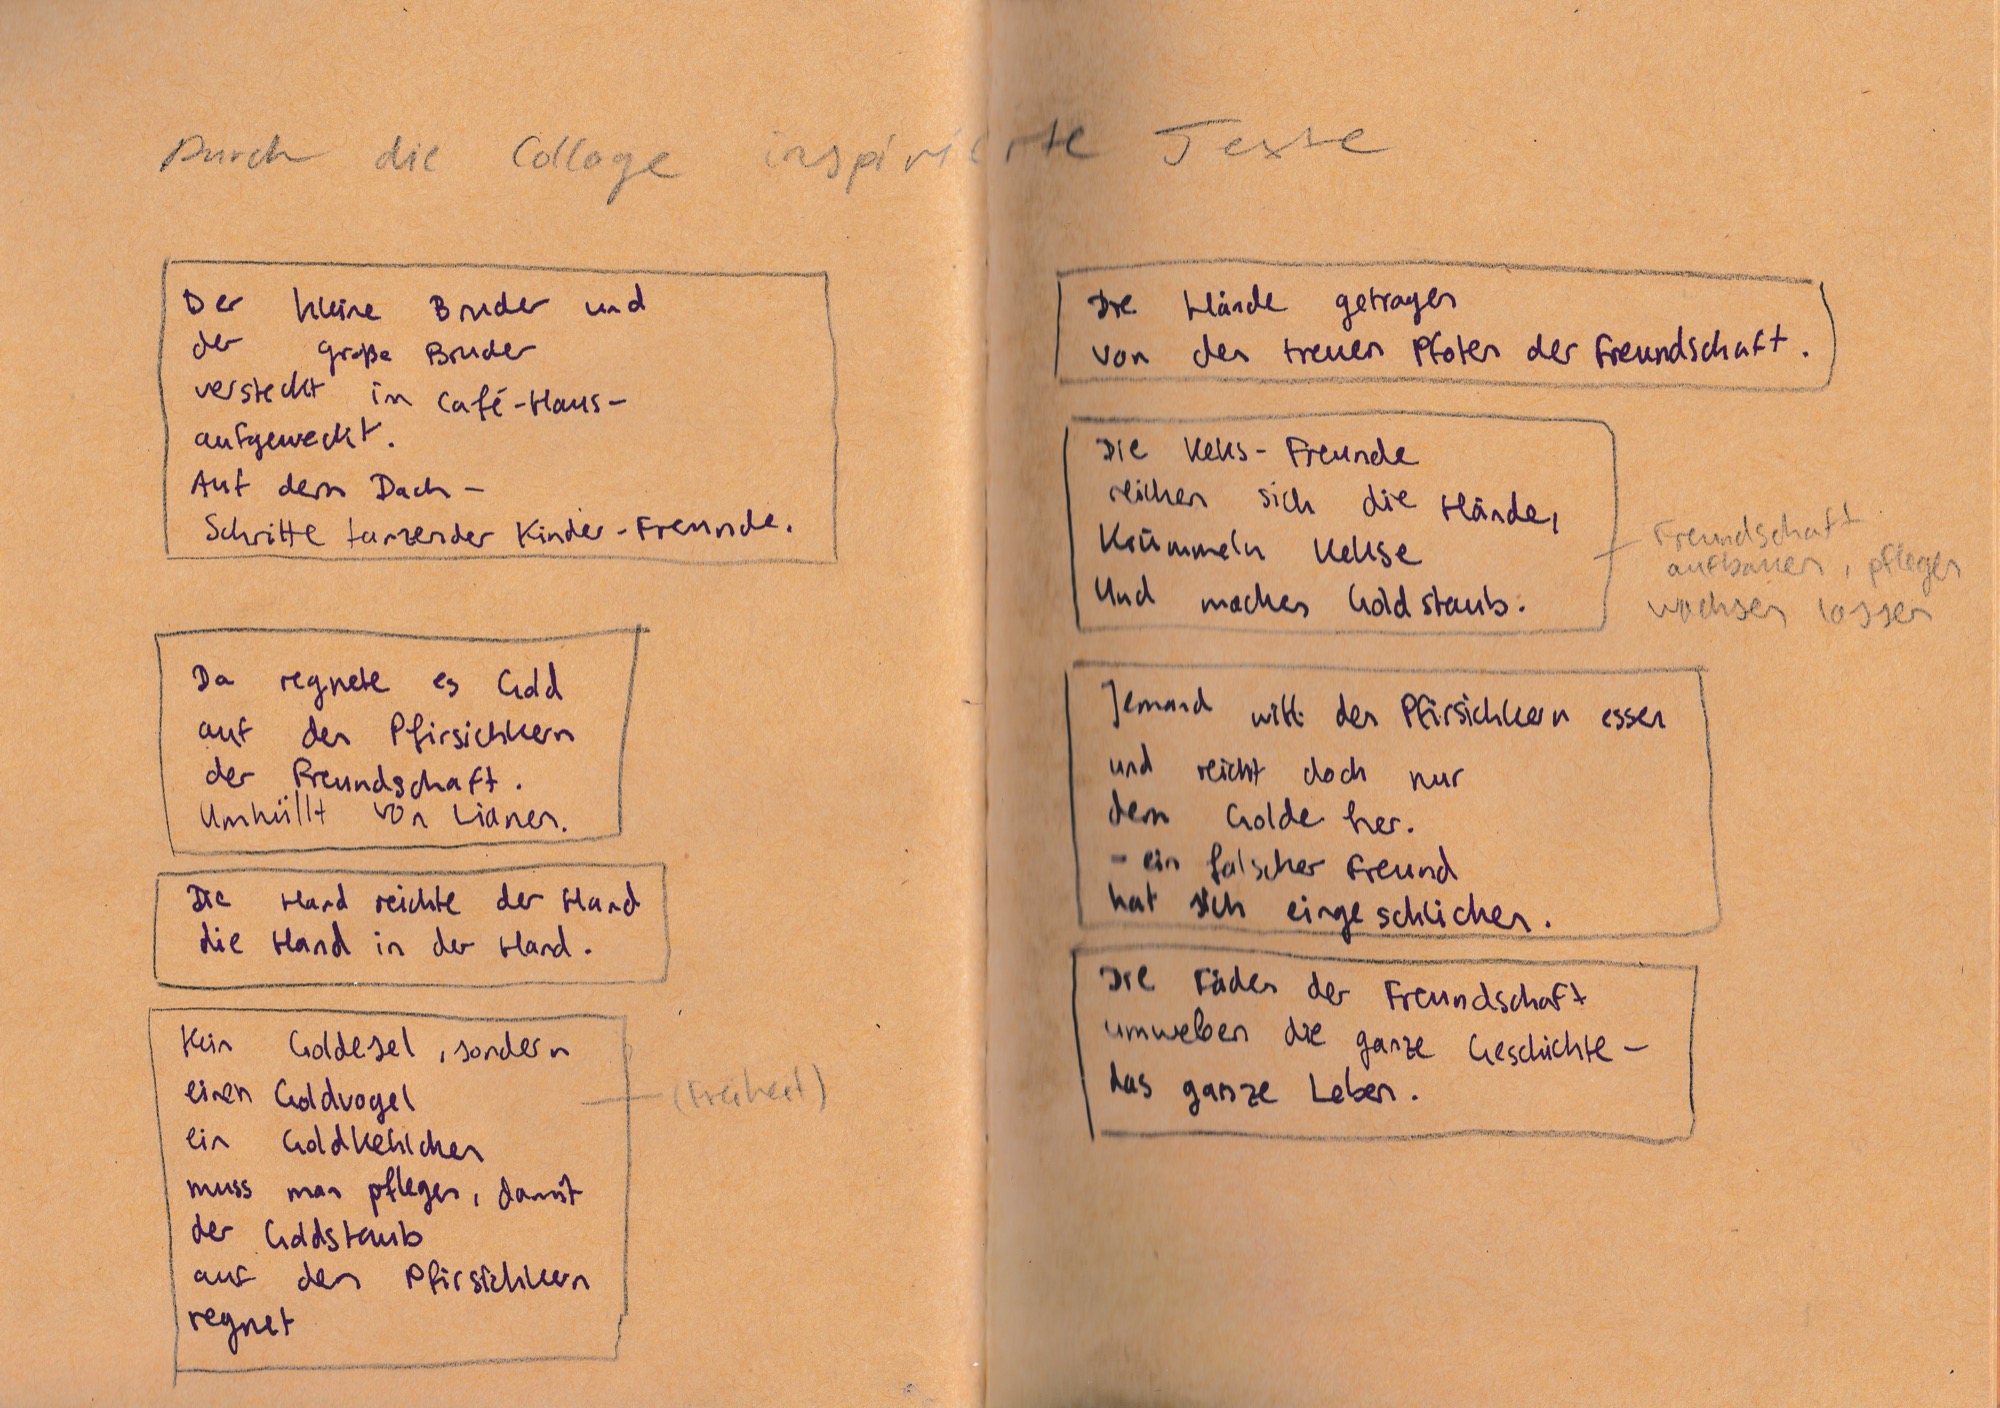 Durch die Collage inspirierte Texte
Der kleine Bruder und
der große Bruder
versteckt in Café-Haus-
aufgeweckt.
Auf dem Dach –
Schritte tanzender Kinder-Freunde.
Da regnete es Gold
auf den Pfirsichkern
der Freundschaft.
Umhüllt von Lianen.
Die Hand reichte der Hand
die Hand in der Hand.
Kein Goldesel, sondern
einen Goldvogel
ein Goldkehlchen
muss man pflegen, damit
der Goldstaub
auf den Pfirsichkern
regnet
(Freiheit)
Die Hände getragen
von den treuen Pfoten der Freundschaft.
Die Keks-Freunde
reichen sich die Hände,
Krümmeln Kekse
Und machen Goldstaub.
Freundschaft
aufbauen, pflegen
wachsen lassen
Jemand will den Pfirsichkern essen
und reicht doch nur
dem Golde her.
- ein falscher Freund
hat sich eingeschlichen.
Die Fäden der Freundschaft
umweben die ganze Geschichte –
das ganze Leben.